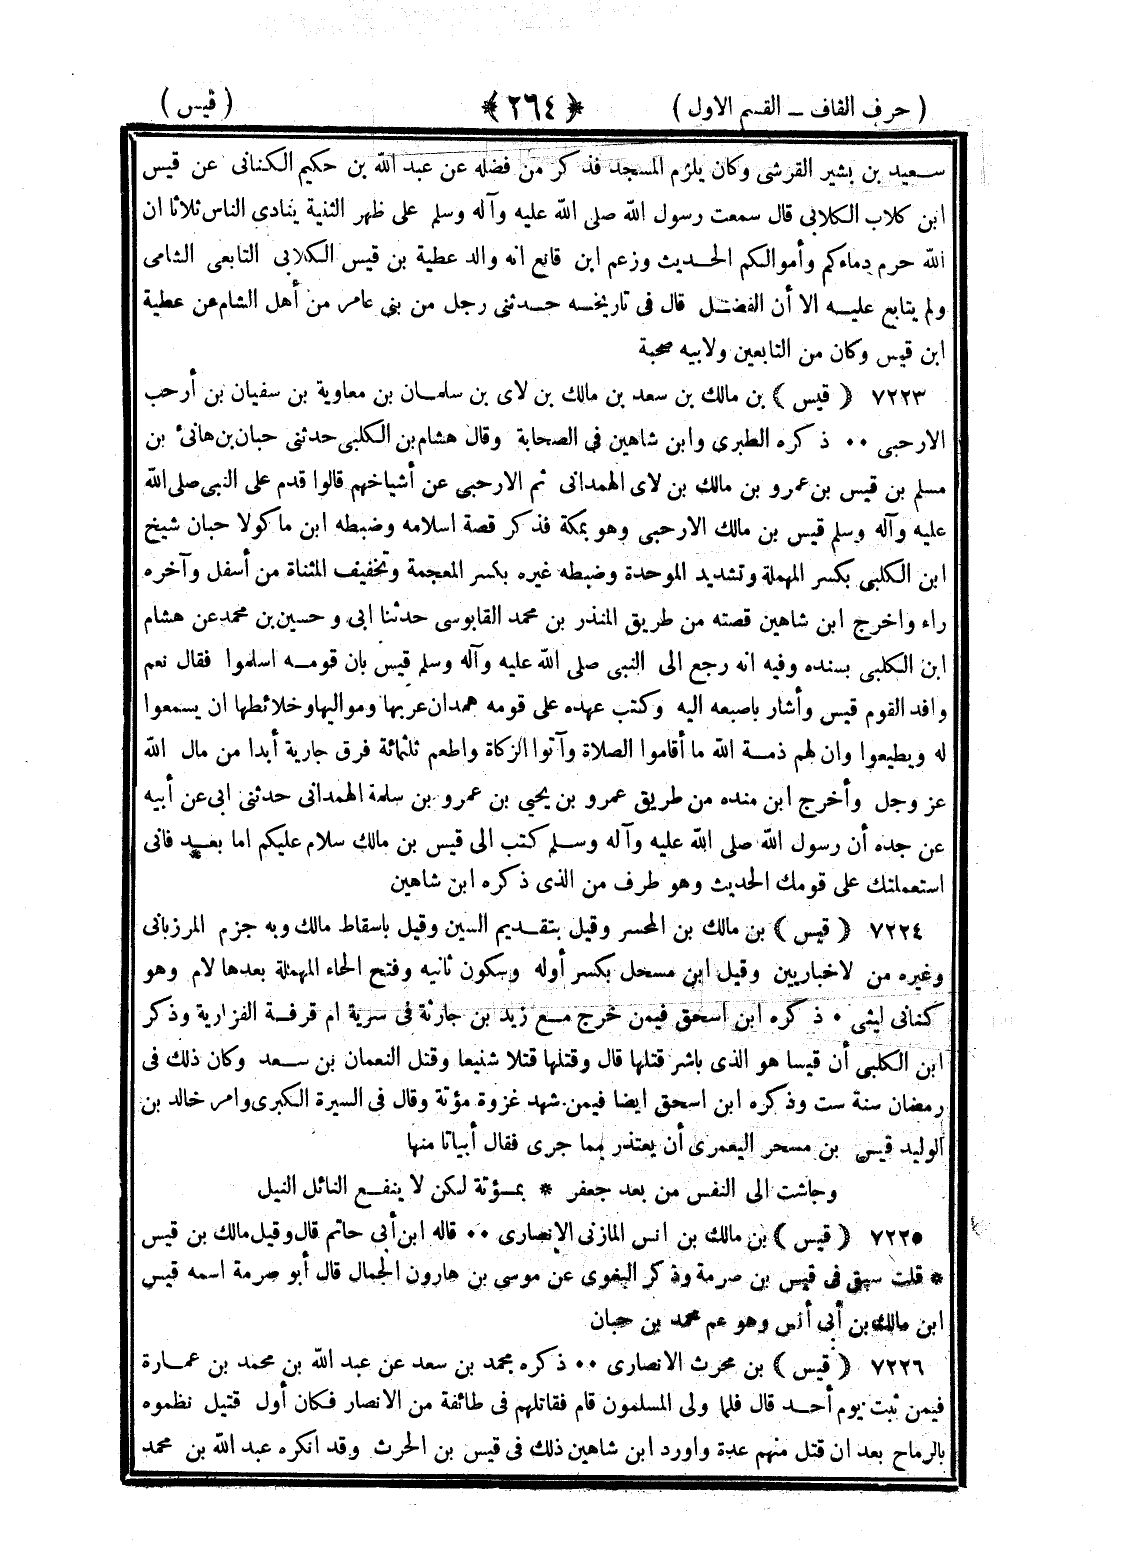 ( حرف القاف ـ القسم الاول ) ﴿ ٢٦٤ ﴾ ( قيس )
سعيد بن بشير القرشى وكان يلزم المسجد فذكر من فضله عن عبد الله بن حكيم الكنانى عن قيس
ابن كلاب الكلابى قال سمعت رسول الله صلى الله عليه وآله وسلم على ظهر الثنية ينادى الناس ثلاثا ان
الله حرم دماءكم وأموالكم الحديث وزعم ابن قانع انه والد عطية بن قيس الكلابى التابعى الشامى
ولم يتابع عليه الا أن الفضل قال فى تاريخه حدثنى رجل من بنى عامر من أهل الشام عن عطية
ابن قيس وكان من التابعين ولابيه صحبة
٧٢٢٣ ( قيس ) بن مالك بن سعد بن مالك بن لاى بن سلمان بن معاوية بن سفيان بن أرحب
الارحبى ٠٠ ذكره الطبرى وابن شاهين فى الصحابة وقال هشام بن الكلبى حدثنى حبان بن هانئ بن
مسلم بن قيس بن عمرو بن مالك بن لاى الهمدانى ثم الارحبى عن أشياخهم قالوا قدم على النبى صلى الله
عليه وآله وسلم قيس بن مالك الارحبى وهو بمكة فذكر قصة اسلامه وضبطه ابن ماكولا حبان شيخ
ابن الكلبى بكسر المهملة وتشديد الموحدة وضبطه غيره بكسر المعجمة وتخفيف المثناة من أسفل وآخره
راء واخرج ابن شاهين قصته من طريق المنذر بن محمد القابوسى حدثنا ابى و حسين بن محمد عن هشام
ابن الكلبى بسنده وفيه انه رجع الى النبى صلى الله عليه وآله وسلم قيس بان قومه اسلموا فقال نعم
وافد القوم قيس وأشار باصبعه اليه وكتب عهده على قومه همدان عربها ومواليها وخلائطها ان يسمعوا
له ويطيعوا وان لهم ذمة الله ما أقاموا الصلاة وآتوا الزكاة واطعم ثلثمائة فرق جارية أبدا من مال الله
عز وجل وأخرج ابن منده من طريق عمرو بن يحيى بن عمرو بن سلمة الهمدانى حدثنى ابى عن أبيه
عن جده أن رسول الله صلى الله عليه وآله وسلم كتب الى قيس بن مالك سلام عليكم اما بعد فانى
استعملتك على قومك الحديث وهو طرف من الذى ذكره ابن شاهين
٧٢٢٤ ( قيس ) بن مالك بن المحسر وقيل بتقديم السين وقيل باسقاط مالك وبه جزم المرزبانى
وغيره من لاخباريين وقيل ابن مسحل بكسر أوله وسكون ثانيه وفتح الحاء المهملة بعدها لام وهو
كنانى ليثى ٠ ذكره ابن اسحق فيمن خرج مع زيد بن حارثة فى سرية ام قرفة الفزارية وذكر
ابن الكلبى أن قيسا هو الذى باشر قتلها قال وقتلها قتلا شنيعا وقتل النعمان بن سعد وكان ذلك فى
رمضان سنة ست وذكره ابن اسحق ايضا فيمن شهد غزوة مؤتة وقال فى السيرة الكبرى وامر خالد بن
الوليد قيس بن مسحر اليعمرى أن يعتذر مما جرى فقال أبياتا منها
وجاشت الى النفس من بعد جعفر * بمؤتة لكن لا ينفع النائل النيل
٧٢٢٥ ( قيس ) بن مالك بن انس المازنى الانصارى ٠٠ قاله ابن أبى حاتم قال وقيل مالك بن قيس
* قلت سبق فى قيس بن صرمة وذكر البغوى عن موسى بن هارون الحمال قال أبو صرمة اسمه قيس
ابن مالك بن أبى أنس وهو عم محمد بن حبان
٧٢٢٦ ( قيس ) بن محرث الانصارى ٠٠ ذكره محمد بن سعد عن عبد الله بن محمد بن عمارة
فيمن ثبت يوم أحد قال فلما ولى المسلمون قام فقاتلهم فى طائفة من الانصار فكان أول قتيل نظموه
بالرماح بعد ان قتل منهم عدة واورد ابن شاهين ذلك فى قيس بن الحرث وقد انكره عبد الله بن محمد